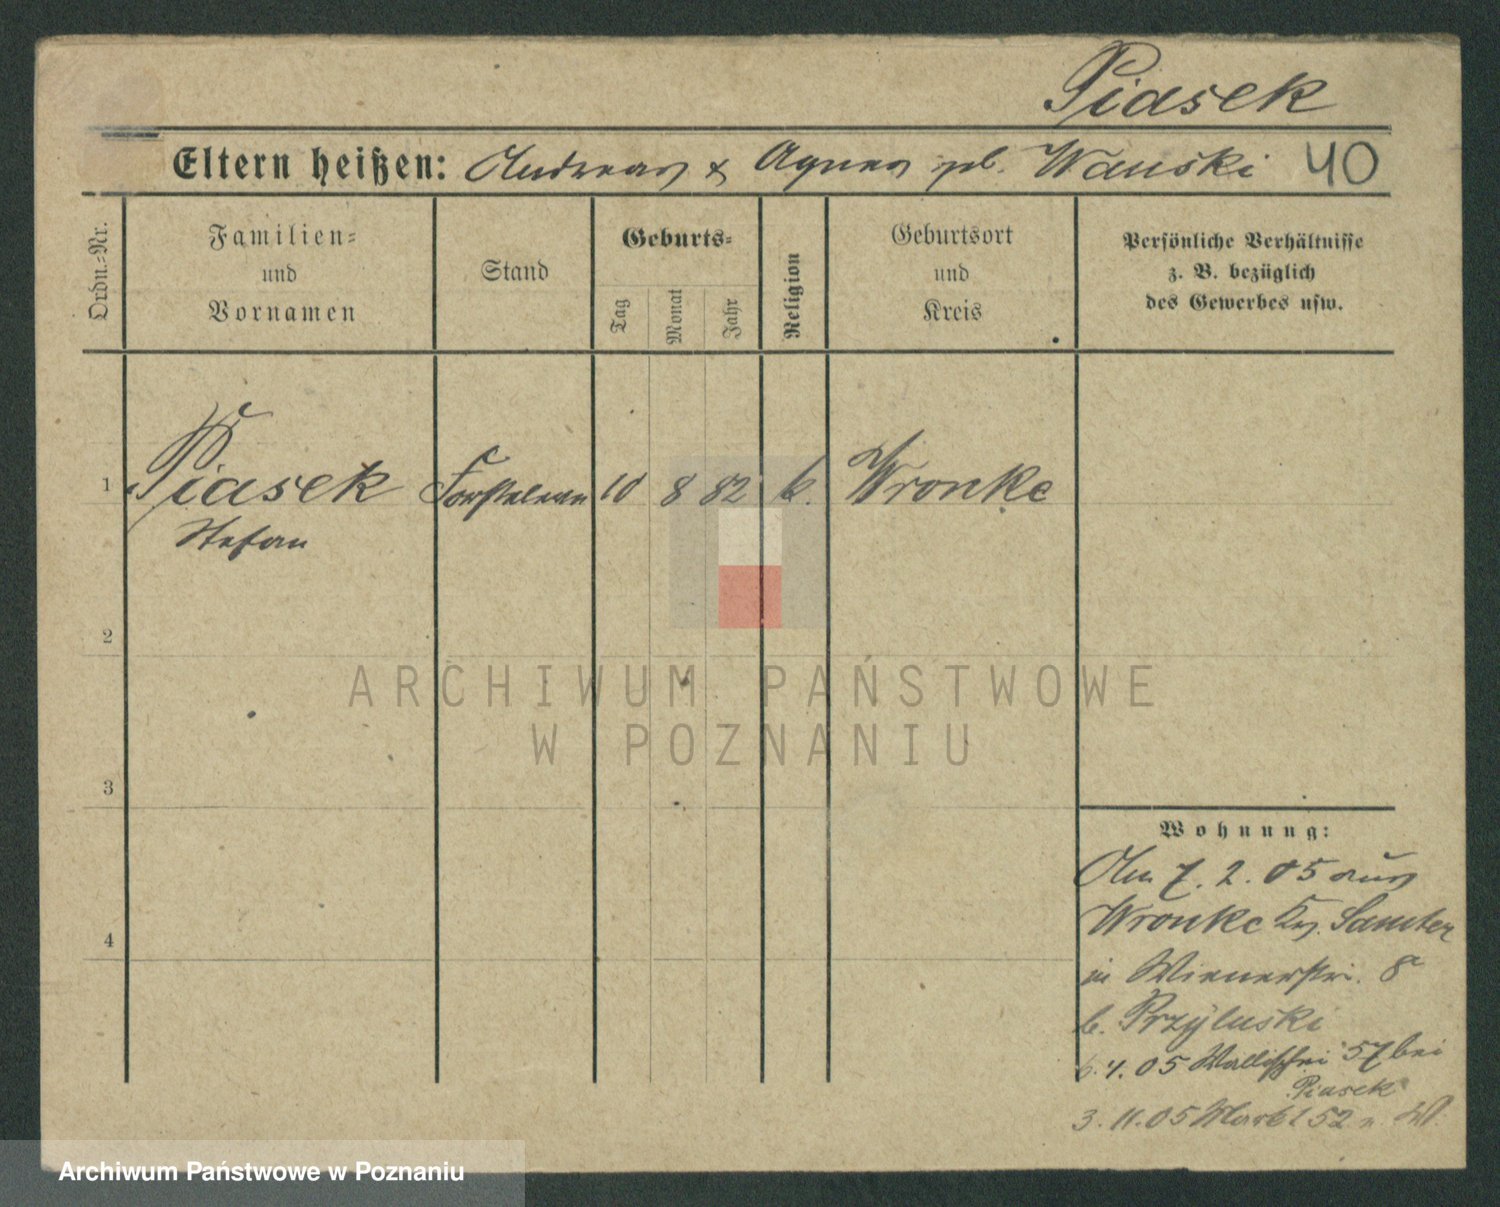 Piasek
Eltern heißen: Andreas & Agnes geb. Wanski 40
Ordn.-Nr.
Familien-
und
Vornamen
Stand
Geburts-
Tag
Monat
Jahr
Religion
Geburtsort
und
Kreis
Persönliche Verhältnisse
z. B. bezüglich
des Gewerbes usw.
1 Piasek 10 8 82 k. Wronke
Stefan
2
ARCHIWUM PAŃSTWOWE
W POZNANIU
3
Wohnung:
Am 7. 2. 05 aus
4 Wronke Krs. Samter
in Wienerstr. 8
b. Przyluski
6. 4. 05 Wallischei 57 bei
Piasek
3. 11. 05 Markt 52
Archiwum Państwowe w Poznaniu